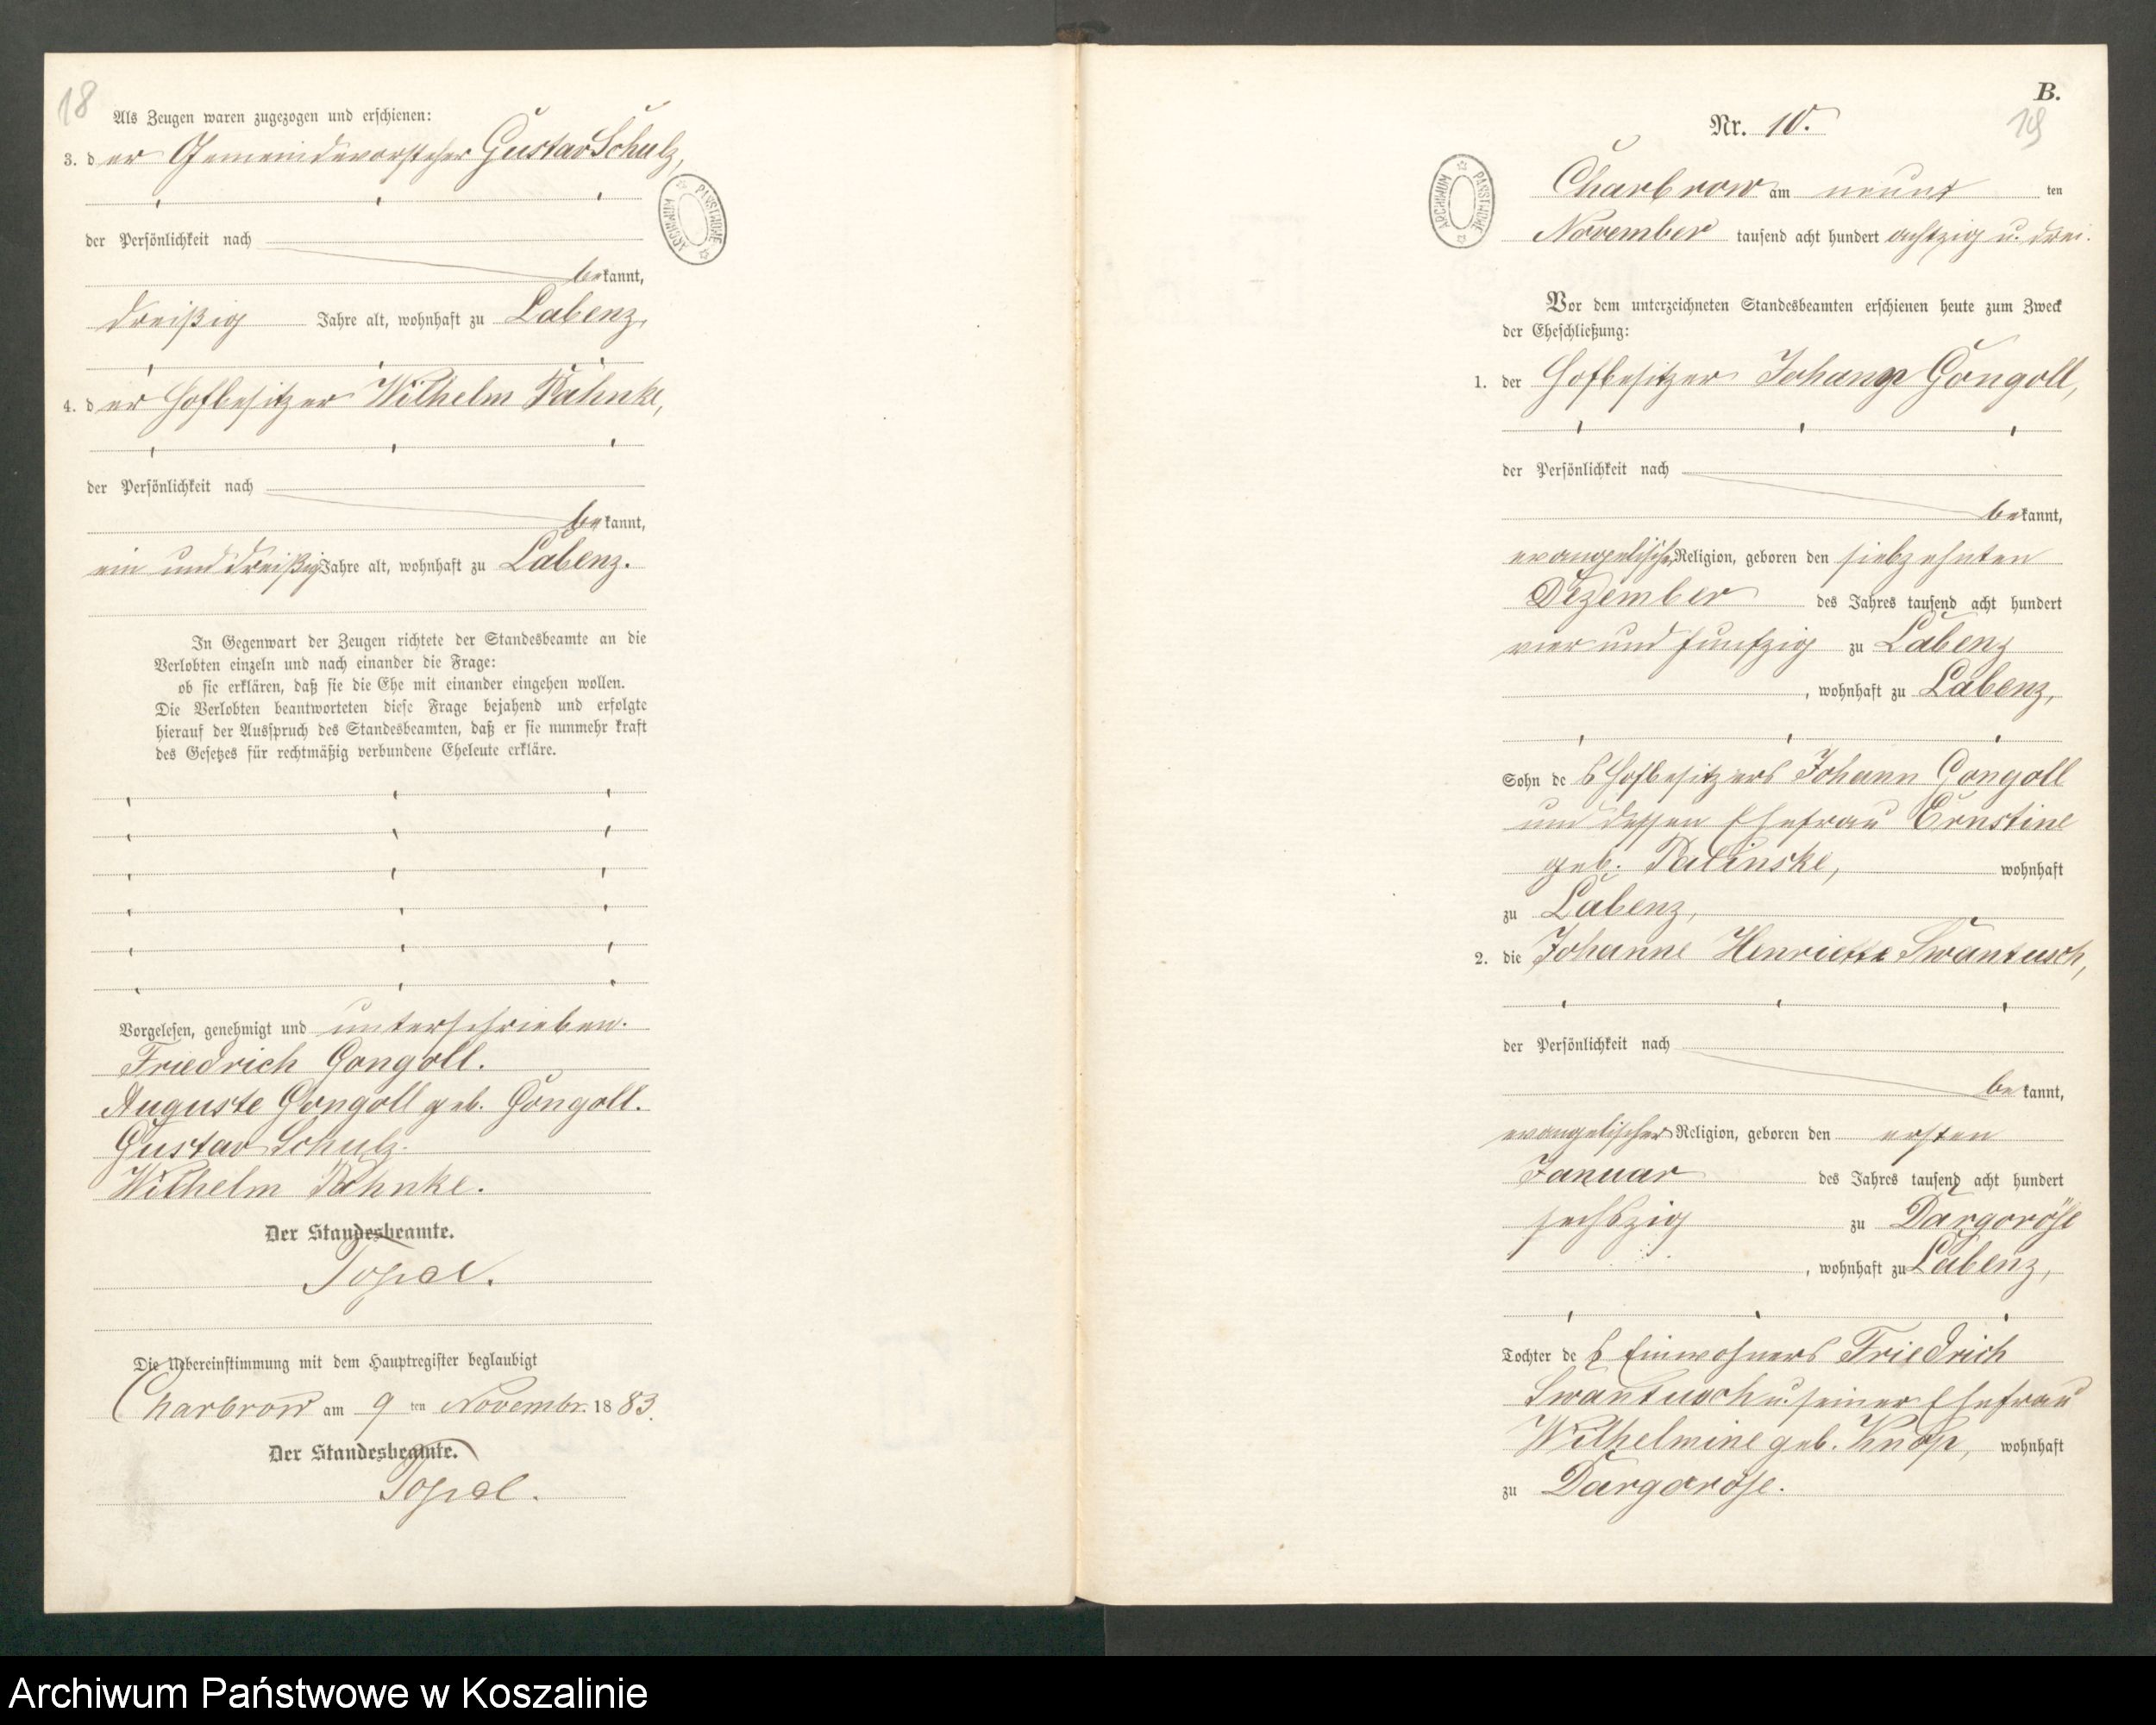 18
Als Zeugen waren zugezogen und erschienen:
3. der Gemeindevorsteher Gustav Schulz,
der Persönlichkeit nach
bekannt,
dreißig Jahre alt, wohnhaft zu Labenz,
4. der Hofbesitzer Wilhelm Pahnke,
der Persönlichkeit nach
bekannt,
ein und dreißig Jahre alt, wohnhaft zu Labenz.
In Gegenwart der Zeugen richtete der Standesbeamte an die
Verlobten einzeln und nach einander die Frage:
ob sie erklären, daß sie die Ehe mit einander eingehen wollen.
Die Verlobten beantworteten diese Frage bejahend und erfolgte
hierauf der Ausspruch des Standesbeamten, daß er sie nunmehr kraft
des Gesetzes für rechtmäßig verbundene Eheleute erkläre.
Vorgelesen, genehmigt und unterschrieben.
Friedrich Gongoll.
Auguste Gongoll geb. Gongoll.
Gustav Schulz.
Wilhelm Pahnke.
Der Standesbeamte.
Die Uebereinstimmung mit dem Hauptregister beglaubigt
Charbrow am 9 ten Novembr. 1883.
Der Standesbeamte.
ARCHIWUM PAŃSTWOWE
B.
19
Nr. 10.
ARCHIWUM PAŃSTWOWE
Charbrow am neunten
November tausend acht hundert achtzig u. drei.
Vor dem unterzeichneten Standesbeamten erschienen heute zum Zweck
der Eheschließung:
1. der Hofbesitzer Johann Gongoll,
der Persönlichkeit nach
bekannt,
evangelischer Religion, geboren den siebzehnten
Dezember des Jahres tausend acht hundert
vier und funfzig zu Labenz
, wohnhaft zu Labenz,
Sohn des Hofbesitzers Johann Gongoll
und dessen Ehefrau Ernstine
geb. wohnhaft
zu Labenz,
2. die Johanne Henriette Swantusch,
der Persönlichkeit nach
bekannt,
evangelischer Religion, geboren den ersten
Januar des Jahres tausend acht hundert
sechszig zu Dargoröse
, wohnhaft zu Labenz,
Tochter des Einwohners Friedrich
Swantusch u. seiner Ehefrau
Wilhelmine geb. Knop, wohnhaft
zu Dargoröse.
Archiwum Państwowe w Koszalinie